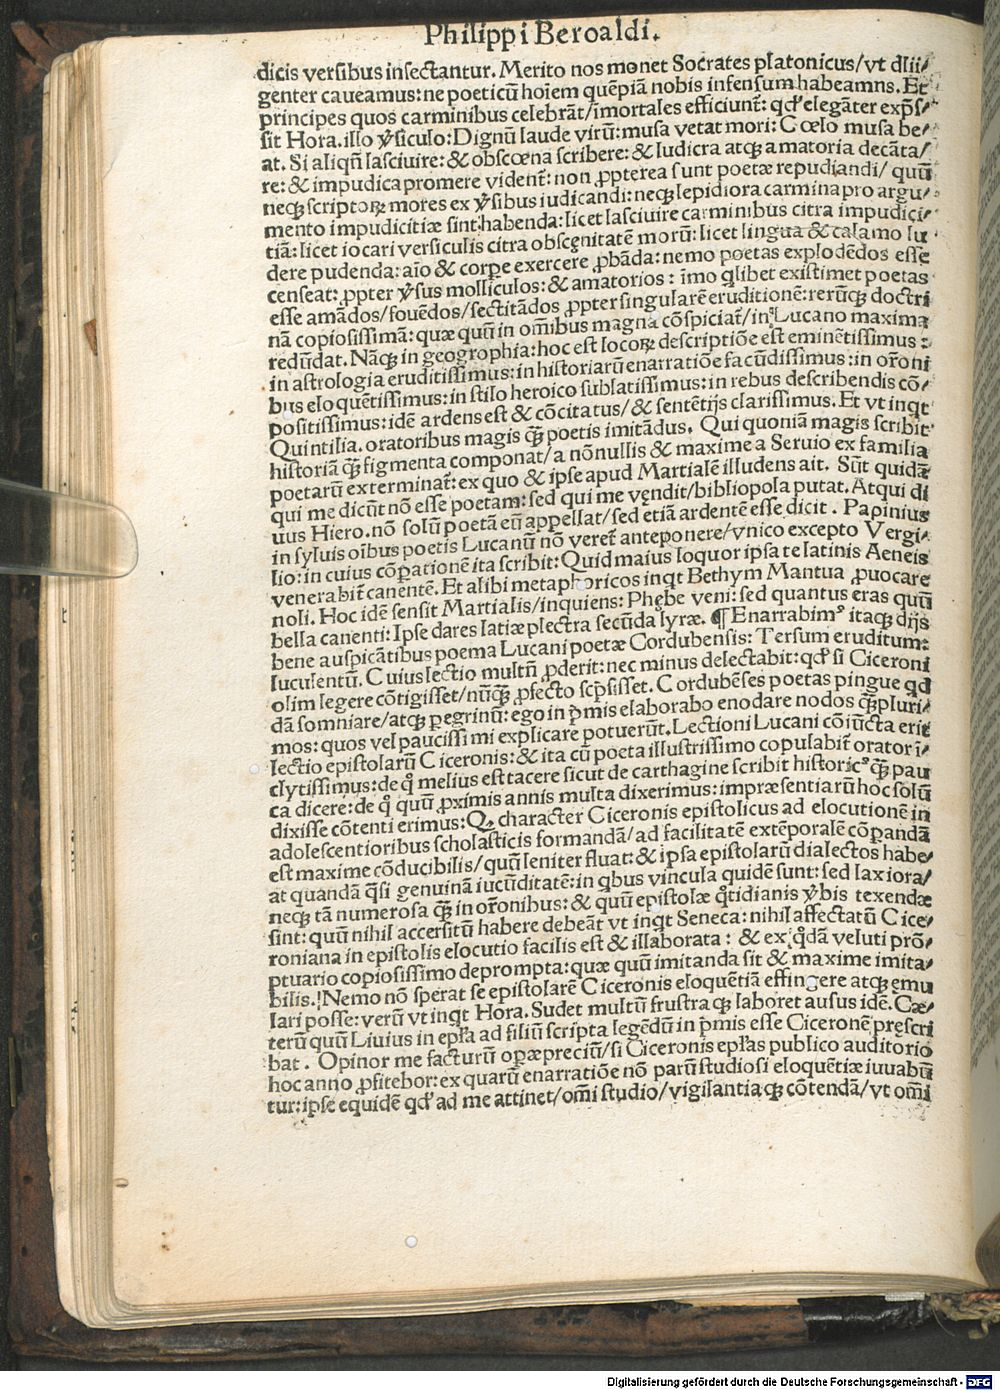 Philippi Beroaldi.
dicis versibus insectantur. Merito nos monet Socrates platonicus/vt dlii⸗
genter caueamus: ne poeticũ hoı̃em quẽpiã nobis infensum habeamns. Et
principes quos carminibus celebrãt/imortales efficiunt̃: qd̛ elegãter exp̃s⸗
sit Hora. illo ṽsiculo: Dignũ laude virũ: musa vetat mori: Cœlo musa be⸗
at. Si aliqñ lasciuire: & obscœna scribere: & ludicra atqꝫ amatoria decãta/
re: & impudica promere vident̃: non ꝓpterea sunt poetæ repudiandi/ quũ
neqꝫ scriptoꝝ mores ex ṽsibus iudicandi: neqꝫ lepidiora carmina pro argu⸗
mento impudicitiæ sint habenda: licet lasciuire carminibus citra impudici⸗
tiã: licet iocari versiculis citra obscęnitatẽ morũ: licet lingua & calamo lu
dere pudenda: aı̃o & corpe exercere ꝓbãda: nemo poetas explodẽdos esse
censeat: ꝓpter ṽsus molliculos: & amatorios: ı̃mo qlibet existimet poetas
esse amãdos/fouẽdos/sectitãdos ꝓpter singularẽ eruditionẽ: rerũqꝫ doctri
nã copiosissimã: quæ quũ in om̃ibus magna cõspiciat̃/in Lucano maxima
redũdat. Nãqꝫ in geographia: hoc est locoꝝ descriptiõe est eminẽtissimus:
in astrologia eruditissimus: in historiarũ enarratiõe facũdissimus: in or̃oni
bus eloquẽtissimus: in stilo heroico sublatissimus: in rebus describendis cõ⸗
positissimus: idẽ ardens est & cõcitatus/& sentẽtijs clarissimus. Et vt inqt
Quintilia. oratoribus magis qꝫ̃ poetis imitãdus. Qui quoniã magis scribit
historiã qꝫ̃ figmenta componat/a nõnullis & maxime a Seruio ex familia
poetarũ exterminat̃: ex quo & ipse apud Martialẽ illudens ait. Sũt quidã
qui me dicũt nõ esse poetam: sed qui me vendit/bibliopola putat. Atqui di
uus Hiero. nõ solũ poetã eũ appellat/sed etiã ardentẽ esse dicit. Papinius
in syluis oı̃bus poetis Lucanũ nõ veret̃ anteponere/vnico excepto Vergi⸗
lio: in cuius cõpationẽ ita scribit: Quid maius loquor ipsa te latinis Aeneis
venerabit̃ canentẽ. Et alibi metaphoricos inqt Bethym Mantua ꝓuocare
noli. Hoc idẽ sensit Martialis/inquiens: Phębe veni: sed quantus eras quũ
bella canenti: Ipse dares latiæ plectra secũda lyræ. ¶ Enarrabimꝰ itaqꝫ dijs
bene auspicãtibus poema Lucani poetæ Cordubensis: Tersum eruditum:
luculentũ. Cuius lectio multũ ꝓderit: nec minus delectabit: qd̛ si Ciceroni
olim legere cõtigisset/nũqꝫ̃ ꝓfecto scp̃sisset. Cordubẽses poetas pingue qd
dã somniare/atqꝫ pegrinũ: ego in p̃mis elaborabo enodare nodos qꝫ̃pluri⸗
mos: quos vel paucissimi explicare potuerũt. Lectioni Lucani cõiũcta erit
lectio epistolarũ Ciceronis: & ita cũ poeta illustrissimo copulabit̃ orator ı̃⸗
clytissimus: de q̊ melius est tacere sicut de carthagine scribit historicꝰ qꝫ̃ pau
ca dicere: de q̊ quũ ꝓximis annis multa dixerimus: impræsentiarũ hoc solũ
dixisse cõtenti erimus: Qꝫ character Ciceronis epistolicus ad elocutionẽ in
adolescentioribus scholasticis formandã/ad facilitatẽ extẽporalẽ cõpandã
est maxime cõducibilis/quũ leniter fluat: & ipsa epistolarũ dialectos habe⸗
at quandã qsi genuinã iucũditatẽ: in qbus vincula quidẽ sunt: sed laxiora/
neqꝫ tã numerosa qꝫ̃ in or̃onibus: & quũ epistolæ q̊tidianis ṽbis texendæ
sint: quũ nihil accersitũ habere debeãt vt inqt Seneca: nihil affectatũ Cice⸗
roniana in epistolis elocutio facilis est & illaborata: & ex q̊dã veluti prõ⸗
ptuario copiosissimo deprompta: quæ quũ imitanda sit & maxime imita⸗
bilis. Nemo nõ sperat se epistolarẽ Ciceronis eloquẽtiã effingere atqꝫ ęmu
lari posse: verũ vt inqt Hora. Sudet multũ frustraqꝫ laboret ausus idẽ. Cæ⸗
terũ quũ Liuius in ep̃la ad filiũ scripta legẽdũ in p̃mis esse Ciceronẽ pręscri
bat. Opinor me facturũ opæprecĩũ/si Ciceronis ep̃las publico auditorio
hoc anno ꝓfitebor: ex quarũ enarratiõe nõ parũ studiosi eloquẽtiæ iuuabũ
tur: ipse equidẽ qd̛ ad me attinet/om̃i studio/vigilantiaqꝫ cõtendã/vt om̃i
Digitalisierung gefördert durch die Deutsche Forschungsgemeinschaft - DFG